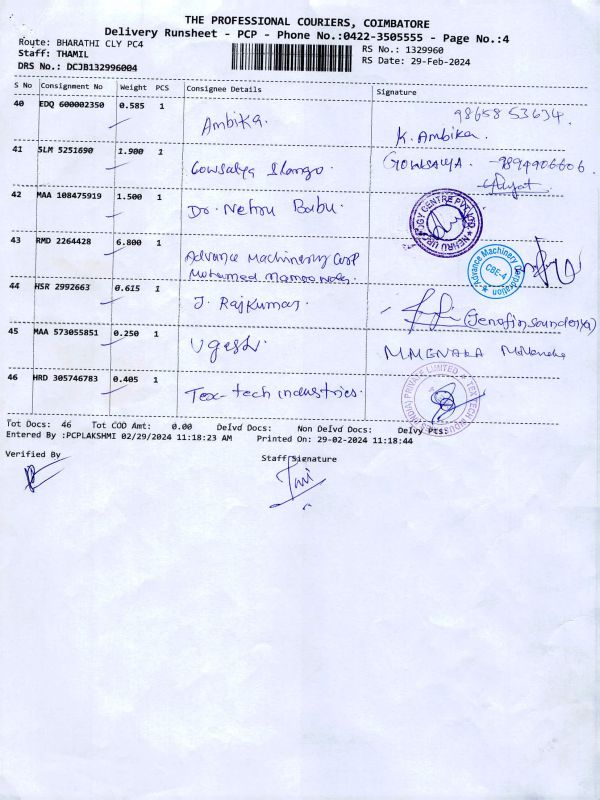 THE PROFESSIONAL COURIERS, COIMBATORE
Delivery Runsheet - PCP - Phone No.:0422-3505555 - Page No.:4
Route: BHARATHI CLY PC4
Staff: THAMIL
DRS No.: DCJB132996004
RS No.: 1329960
RS Date: 29-Feb-2024
S No Consignment No Weight PCS Consignee Details Signature
40 EDQ 600002350 0.585 1 Ambika. 98658 53634.
K. Ambika.
41 SLM 5251690 1.900 1 Gowsalya Ilango. GOWSALYA. - 9894906606.
42 MAA 108475919 1.500 1 Dr. Nehru Babu.
NEHRU UROLOGY CENTRE PVT LTD
43 RMD 2264428 6.800 1 Advance Machinery Corp
Mohamed
Advance Machinery Corporation
CBE-4
44 HSR 2992663 0.615 1 J. Rajkumar.
45 MAA 573055851 0.250 1 M MENAKA
46 HRD 305746783 0.405 1 Tex-tech industries.
TEX TECH INDUSTRIES (INDIA) PRIVATE LIMITED
Tot Docs: 46 Tot COD Amt: 0.00 Delvd Docs: Non Delvd Docs: Delvy Pts:
Entered By :PCPLAKSHMI 02/29/2024 11:18:23 AM Printed On: 29-02-2024 11:18:44
Verified By
Staff Signature